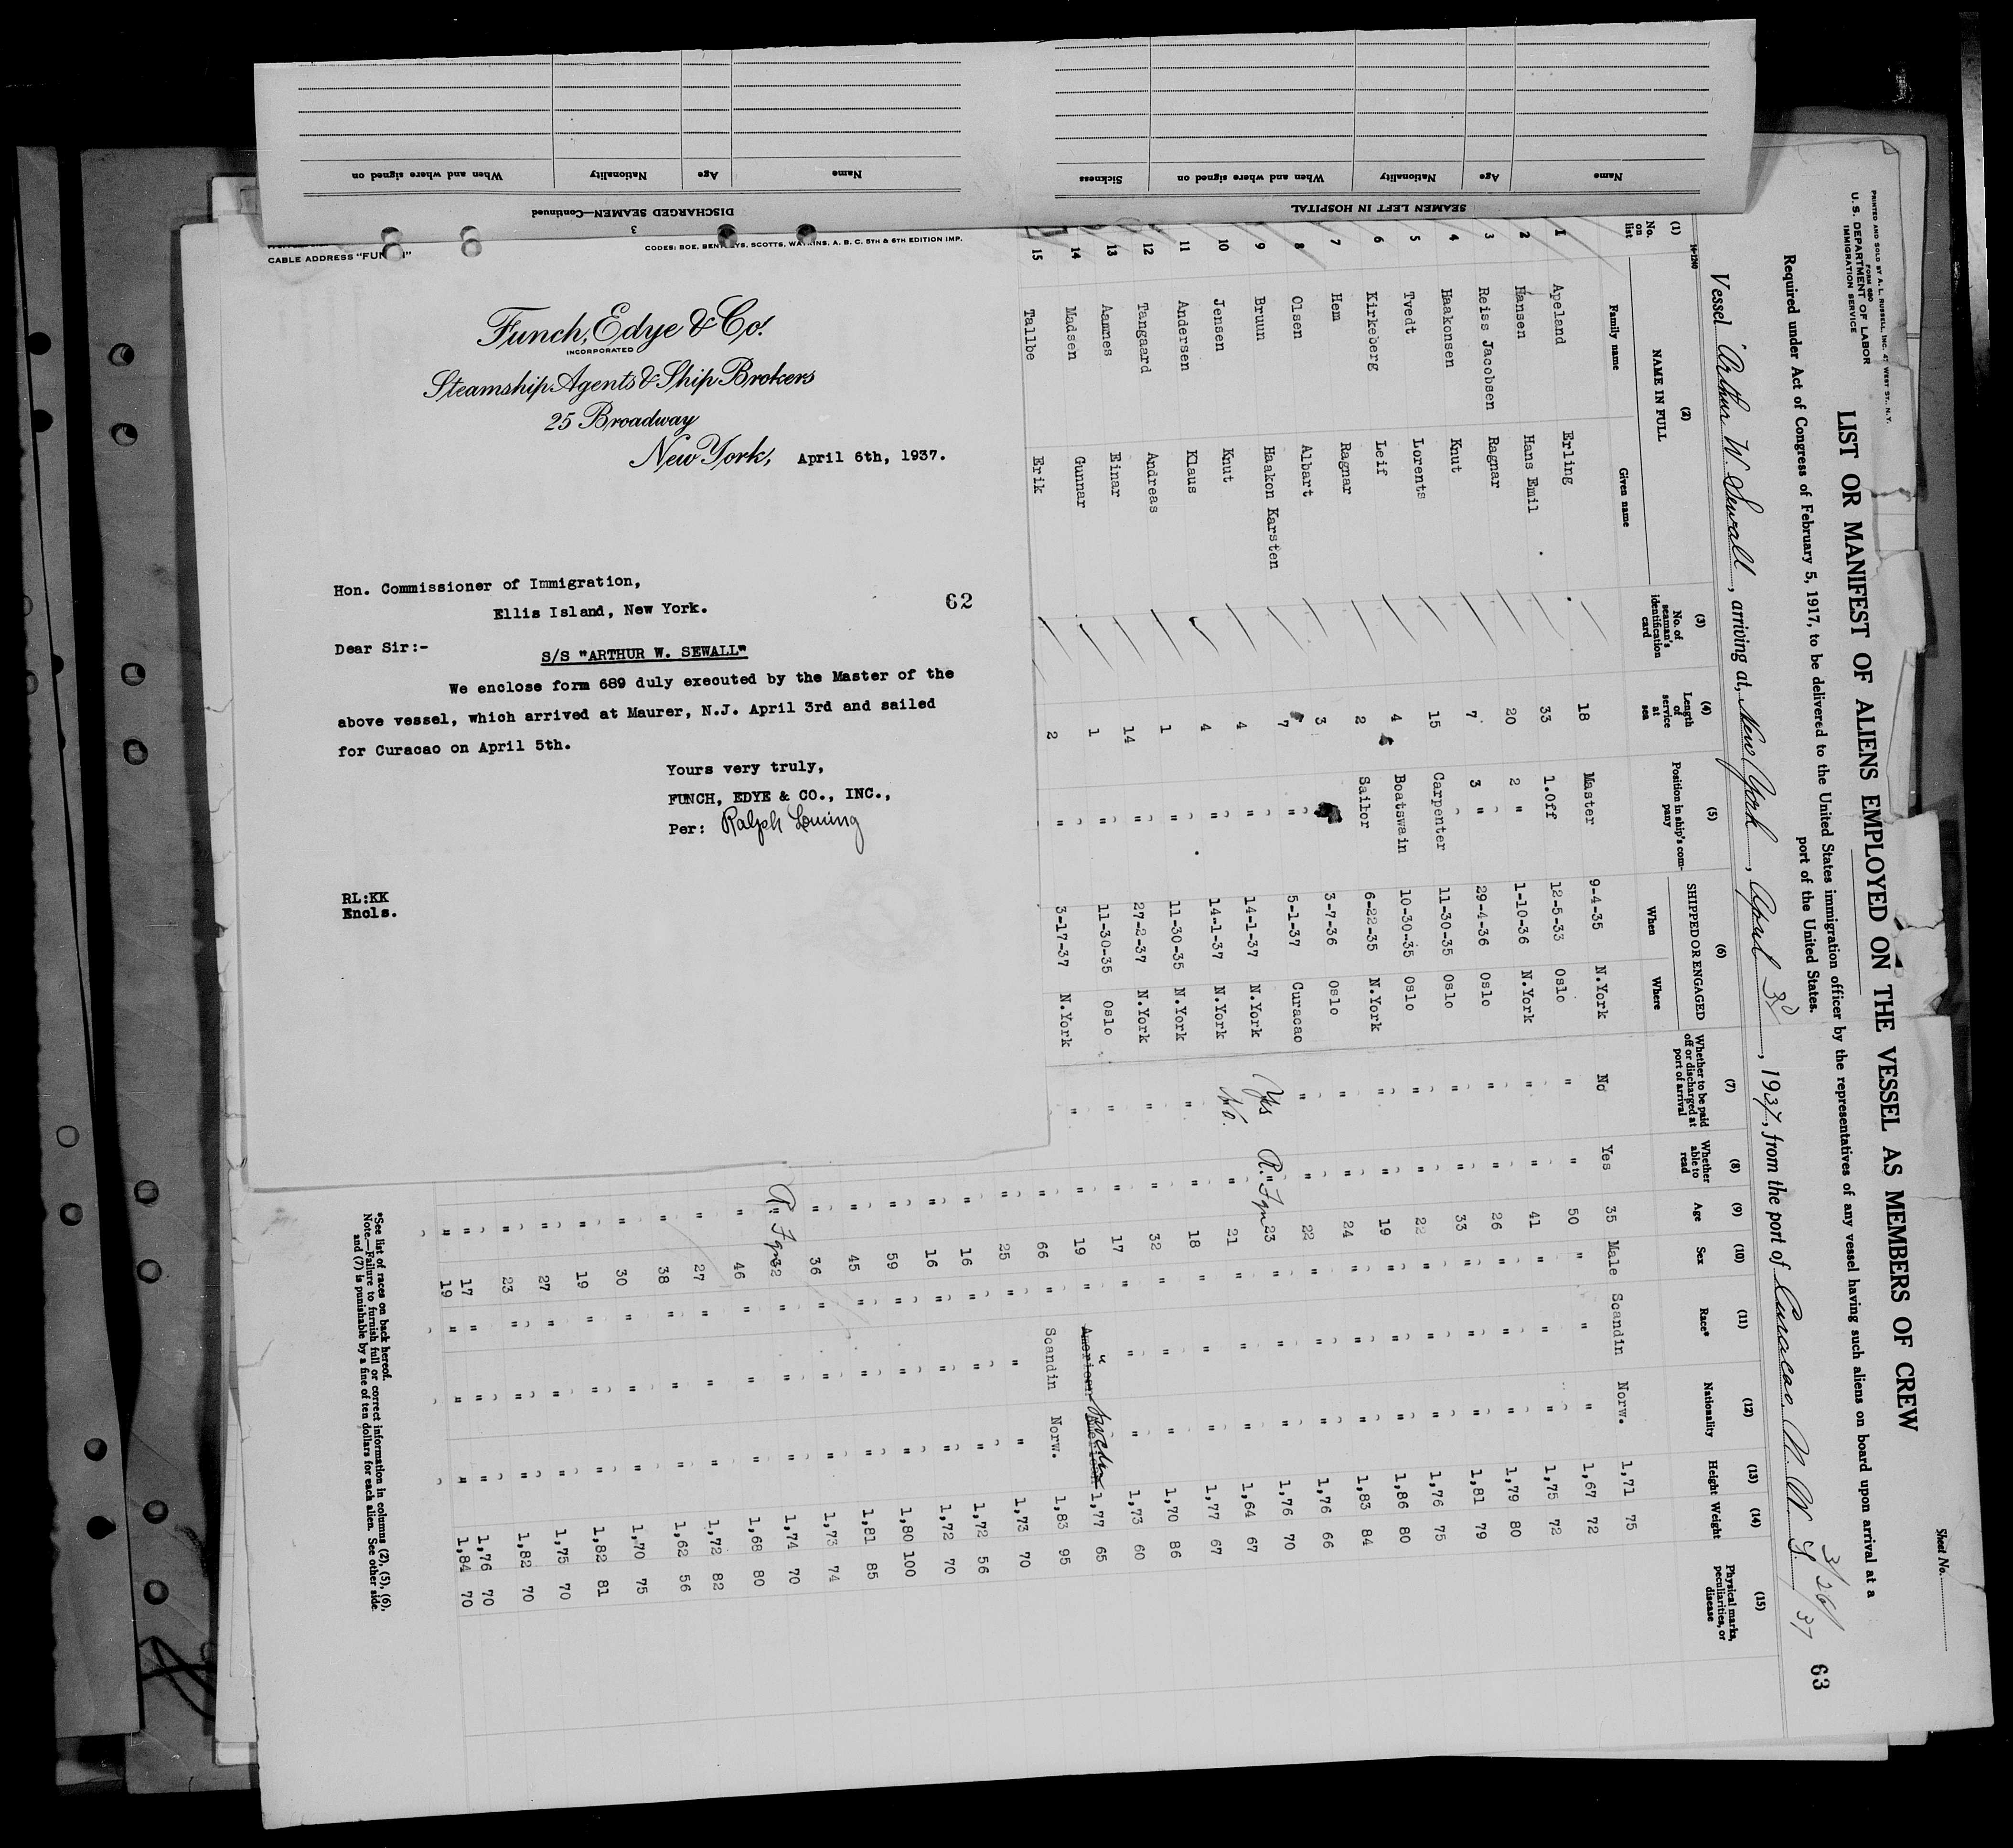 Name Age Nationality When and where signed on
DISCHARGED SEAMEN—Continued
3
Name Age Nationality When and where signed on Sickness
SEAMEN LEFT IN HOSPITAL
CABLE ADDRESS "FUN
CODES: BOE, BEN YS, SCOTTS, WATKINS, A. B. C. 5TH & 6TH EDITION IMP.
Funch, Edye & Co.
INCORPORATED
Steamship Agents & Ship Brokers
25 Broadway
New York, April 6th, 1937.
Hon. Commissioner of Immigration,
Ellis Island, New York.
62
Dear Sir:-
S/S "ARTHUR W. SEWALL"
We enclose form 689 duly executed by the Master of the
above vessel, which arrived at Maurer, N.J. April 3rd and sailed
for Curacao on April 5th.
Yours very truly,
FUNCH, EDYE & CO., INC.,
Per: Ralph
RL:KK
Encls.
Sheet No.
63
PRINTED AND SOLD BY A. L. RUSSELL, INC. 47 WEST ST., N.Y.
FORM 680
U. S. DEPARTMENT OF LABOR
IMMIGRATION SERVICE
LIST OR MANIFEST OF ALIENS EMPLOYED ON THE VESSEL AS MEMBERS OF CREW
Required under Act of Congress of February 5, 1917, to be delivered to the United States immigration officer by the representatives of any vessel having such aliens on board upon arrival at a
port of the United States.
3/26/37
Vessel Arthur W. Sewall, arriving at, New York, April 3d, 1937, from the port of Curacao N. W. I.
14-1240
(1) (2) (3) (4) (5) (6) (7) (8) (9) (10) (11) (12) (13) (14) (15)
No. on list NAME IN FULL Family name Given name No. of seaman's identification card Length of service at sea Position in ship's company SHIPPED OR ENGAGED When Where Whether to be paid off or discharged at port of arrival Whether able to read Age Sex Race* Nationality Height Weight Physical marks, peculiarities, or disease
1 Apeland Erling 18 Master 9-4-35 N.York No Yes 35 Male Scandin Norw. 1,71 75
2 Hansen Hans Emil 33 1.Off 12-5-33 Oslo " " 50 " " " 1,67 72
3 Reiss Jacobsen Ragnar 20 2 " 1-10-36 N.York " " 41 " " " 1,75 72
4 Haakonsen Knut 7 3 " 29-4-36 Oslo " " 26 " " " 1,79 80
5 Tvedt Lorents 15 Carpenter 11-30-35 Oslo " " 33 " " " 1,81 79
6 Kirkeberg Leif 4 Boatswain 10-30-35 Oslo " " 22 " " " 1,76 75
7 Hem Ragnar 2 Sailor 6-22-35 N.York " " 19 " " " 1,86 80
8 Olsen Albart 3 3-7-36 Oslo " " 24 " " " 1,83 84
9 Bruun Haakon Karsten 7 " 5-1-37 Curacao " " 22 " " " 1,76 66
10 Jensen Knut 4 " 14-1-37 N.York Yes R. Fgn 23 " " " 1,76 70
11 Andersen Klaus 4 " 14-1-37 N.York No. " 21 " " " 1,64 67
12 Tangaard Andreas 1 " 11-30-35 N.York " " 18 " " " 1,77 67
13 Aamnes Einar 14 " 27-2-37 N.York " " 32 " " " 1,70 86
14 Madsen Gunnar 1 " 11-30-35 Oslo " " 17 " " " 1,73 60
15 Tallbe Erik 2 " 3-17-37 N.York " 19 " American " Sweden 1,77 65
" 66 " Scandin Norw. 1,83 95
" 25 " " " 1,73 70
" 16 " " " 1,72 56
" 16 " " " 1,72 70
" 59 " " " 1,80 100
" 45 " " " 1,81 85
" 36 " " " 1,73 74
R. Fgn 32 " " " 1,74 70
" 46 " " " 1,68 80
" 27 " " " 1,72 82
" 38 " " " 1,62 56
" 30 " " " 1,70 75
" 19 " " " 1,82 81
" 27 " " " 1,75 70
" 23 " " " 1,82 70
" 17 " " " 1,76 70
" 19 " " " 1,84 70
*See list of races on back hereof.
Note.—Failure to furnish full or correct information in columns (2), (5), (6),
and (7) is punishable by a fine of ten dollars for each alien. See other side.